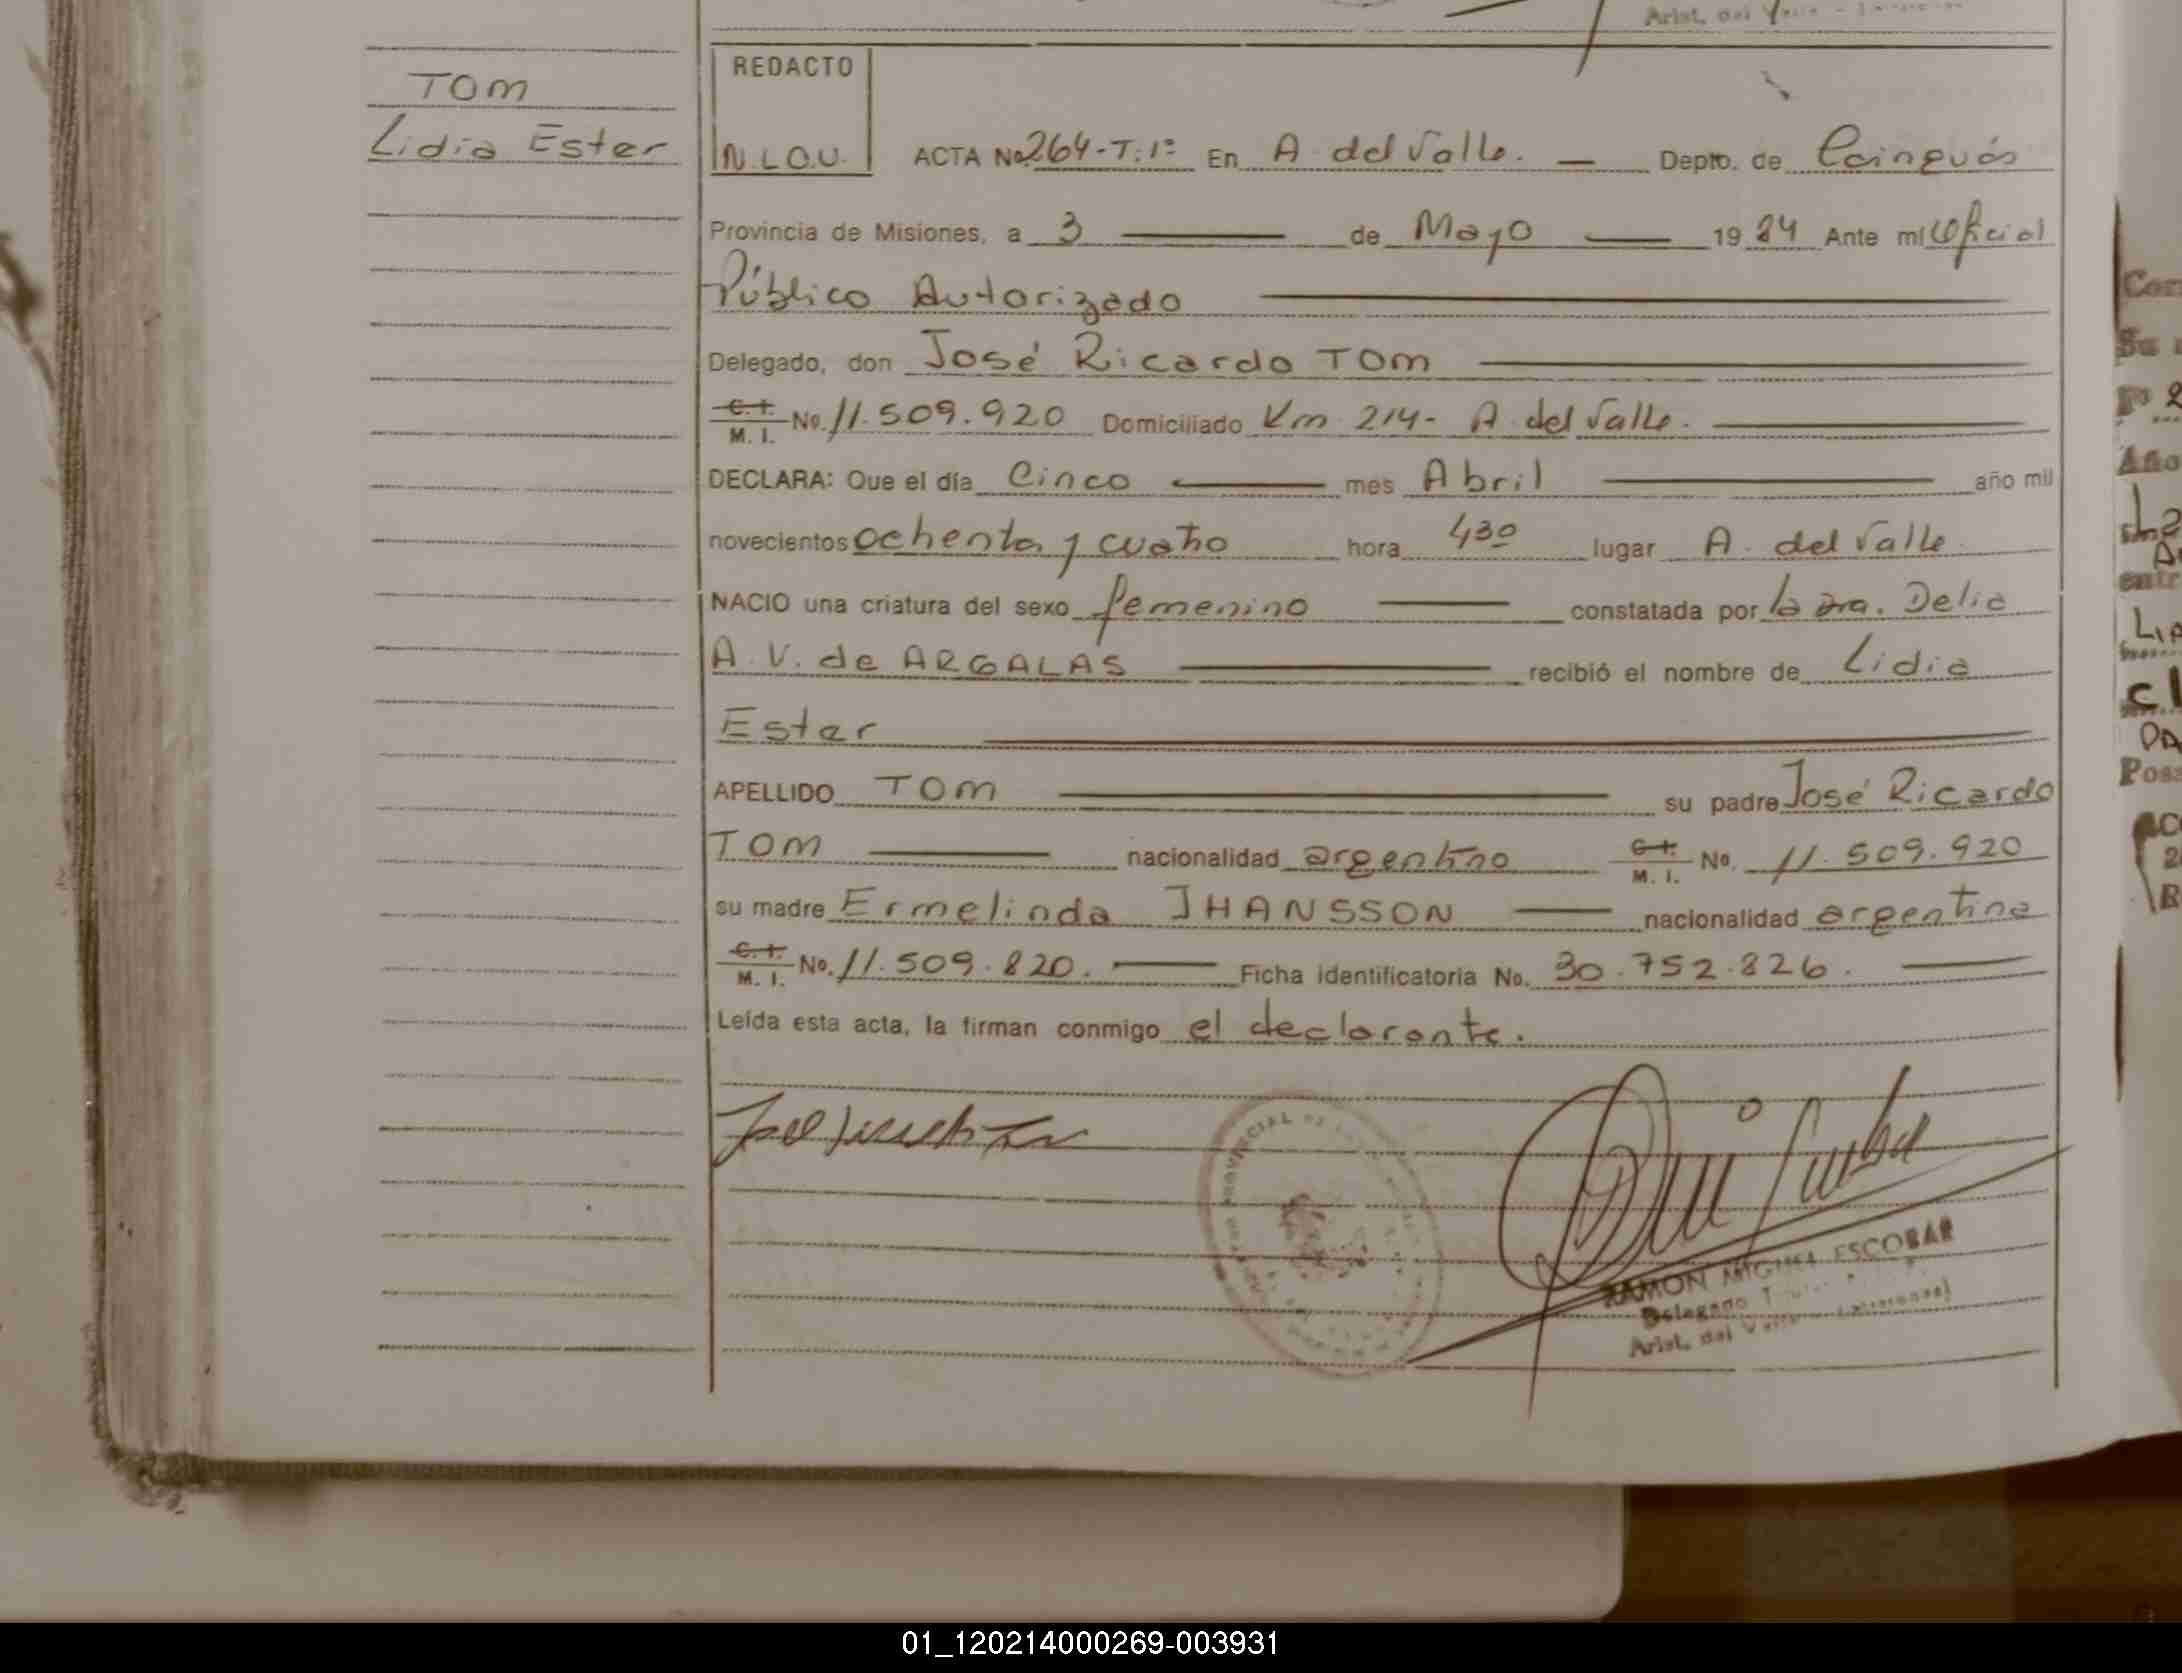 TOM
Lidia Ester
REDACTO
N.L.O.U.
ACTA No 264-T:1º En A. del Valle. — Depto. de Cainguás
Provincia de Misiones, a 3 — de Mayo — 1984 Ante mi Oficial
Público Autorizado
Delegado, don José Ricardo TOM
C. I.
M. I. No. 11.509.920 Domiciliado Km 214- A. del Valle.
DECLARA: Que el día Cinco mes Abril año mil
novecientos ochenta y cuatro hora 4 30 lugar A. del Valle.
NACIO una criatura del sexo femenino constatada por la Sra. Delia
A. V. de ARGALAS recibió el nombre de Lidia
Ester
APELLIDO TOM su padre José Ricardo
TOM nacionalidad argentino C. I.
M. I. No. 11.509.920
su madre Ermelinda JHANSSON nacionalidad argentina
C. I.
M. I. No. 11.509.820. Ficha identificatoria No. 30.752.826.
Leída esta acta, la firman conmigo el declarante.
PROVINCIAL DE
RAMON MIGUEL ESCOBAR
Delegado
Arist. del Valle (Misiones)
01_120214000269-003931